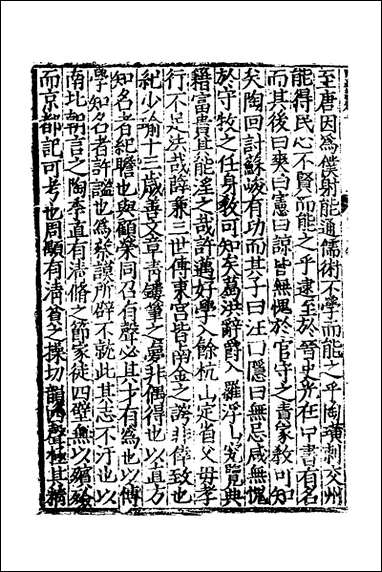 至唐因為僕射能通儒術不學而能之乎陶璜刺交州
能得民心不賢而能之乎逮至於晉史光在中書有名
而其後曰爽曰憲曰諒皆無愧於官守之責家敎可知
矣陶回討蘇峻有功而其子曰汪曰隱曰無忌咸無愧
於守牧之任身敎可知矣葛洪辭爵入羅浮山究覽典
籍富貴其能淫之哉許邁好學入餘杭山定省父母孝
行不足法哉薛兼三世傅東宮皆南金之譽非倖致也
紀少瑜十三歲善文章靑鏤筆之夢非偶得也以直方
知名者紀瞻也與顧榮同召有聲必其才有為也以博
學知名者許謐也為蔡謨所辟不就此其志不汙也以
南北朝言之陶季直有清脩之節家徒四壁無以殯殮
而京都記可考也周顒有清貧之操切韻四聲極其精